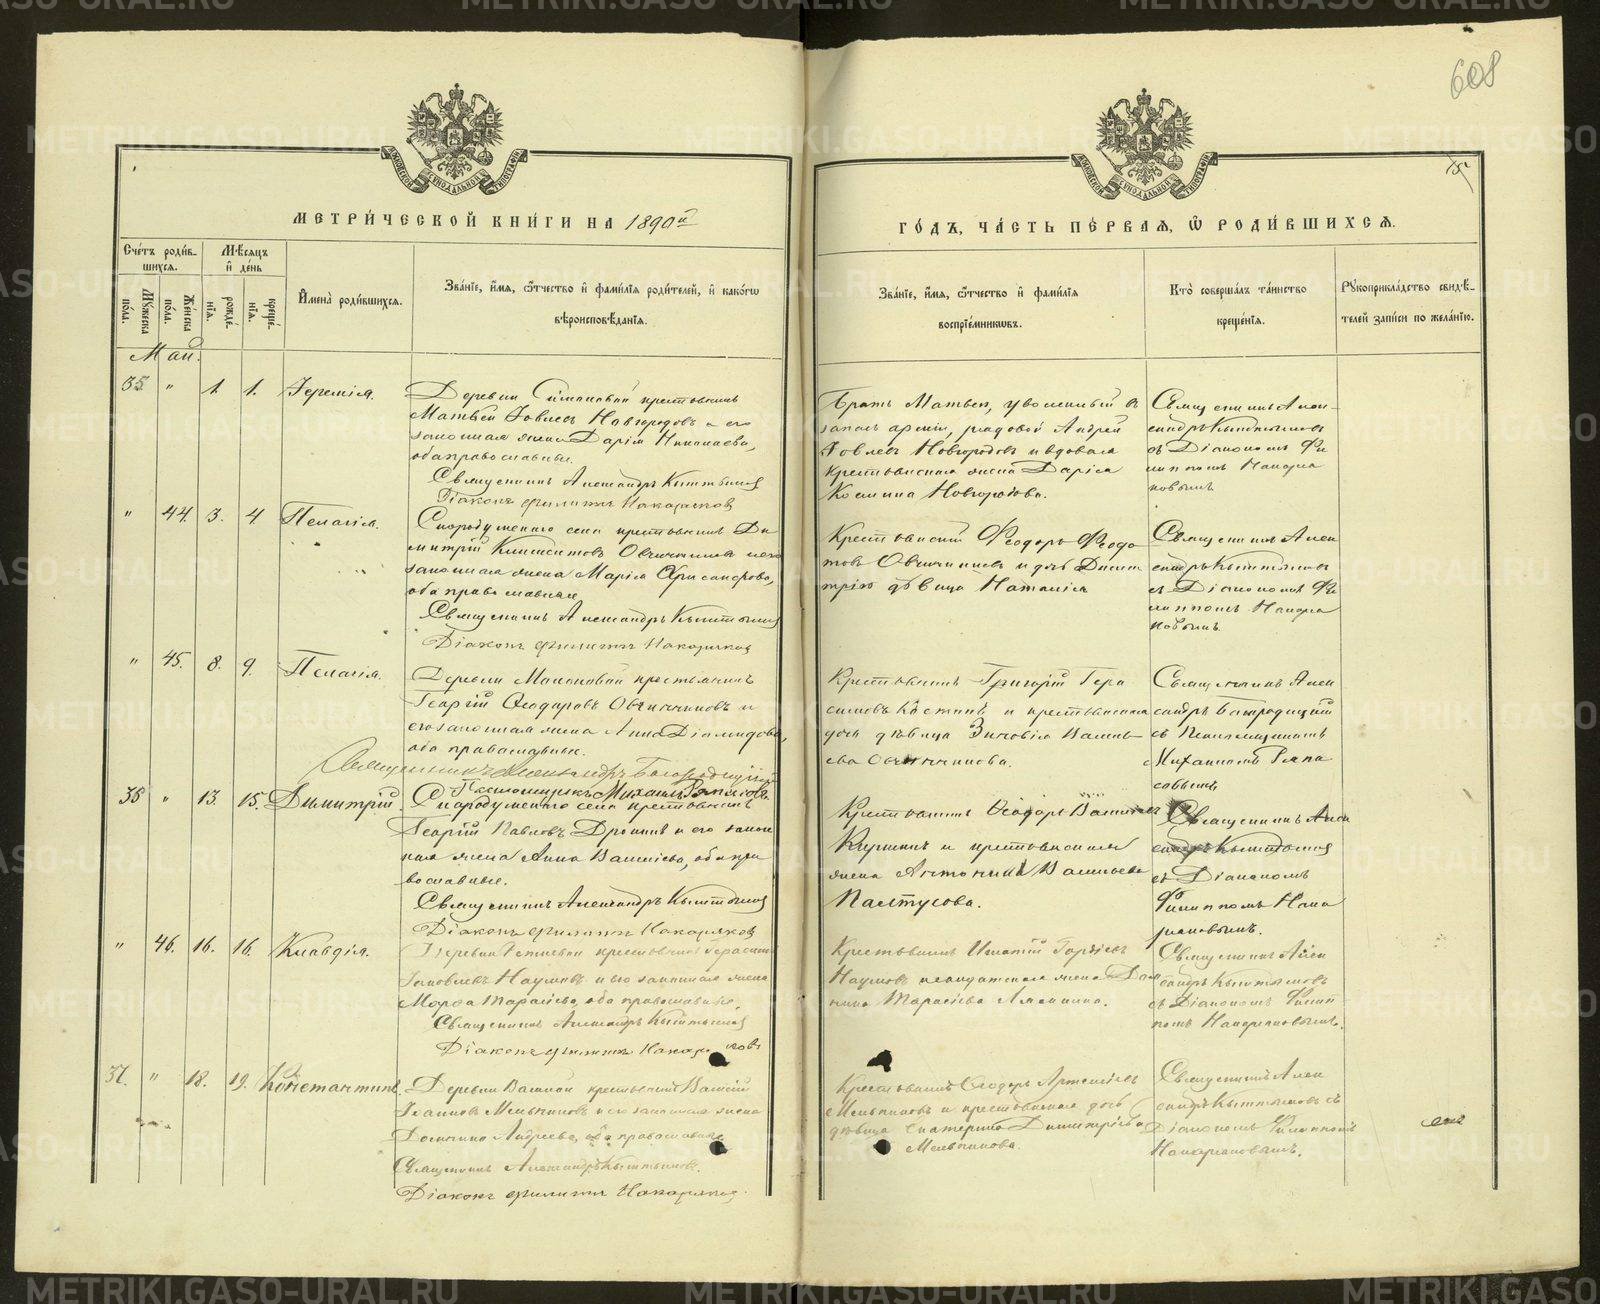 608
75
МЕТРИ́ЧЕСКОЙ КНИ́ГИ НА 1890й
ГО́ДЪ, ЧА́СТЬ ПЕ́РВАЯ, Ѽ РОДИ́ВШИХСЯ.
Сче́тъ роди́в-
шихся.
Мѣ́сяцъ
и҆ де́нь
Му́жеска
по́ла.
Же́нска
по́ла.
рожде́-
нїя.
креще́-
нїя.
И҆мена̀ роди́вшихся.
Зва́нїе, и҆́мя, ѻ҆́тчество и҆ фами́лїя роди́телей, и҆ како́гѡ
вѣроисповѣ́данїя.
Зва́нїе, и҆́мя, ѻ҆́тчество и҆ фами́лїя
воспрїе́мникѡвъ.
Кто̀ соверша́лъ та́инство
креще́нїя.
Рꙋкоприкла́дство свидѣ́-
телей за́писи по жела́нїю.
Май.
35. " 1. 1. Іеремія.
Деревни крестьянинъ
Матвей Іовлевъ Новгородовъ и его
законная жена Дарія Николаева,
оба православные.
Священникъ Александръ Кыштымов
Діаконъ Филиппъ Накаряков
Братъ Матвея, уволенный въ
запасъ арміи, рядовой Андрей
Іовлевъ Новгородовъ и вдовая
крестьянская жена Дарія
Косьмина Новгородова.
Священникъ Алек-
сандръ Кыштымовъ
съ Діакономъ Фи
липпомъ Накаря
ковымъ.
" 44. 3. 4 Пелагія.
Скородумскаго села крестьянинъ Ди
митрій Овчинниковъ и его
законная жена Марія Хрисанфова,
оба православные
Священникъ Александръ Кыштымов
Діаконъ Филиппъ Накаряков
Крестьянинъ Ѳеодоръ Ѳедо
товъ Овчинниковъ и дочь Дими
трія дѣвица Наталія
Священникъ Алек
сандръ Кыштымовъ
съ Діакономъ Фи
липпомъ Накаря
ковымъ.
" 45. 8. 9. Пелагія.
Деревни крестьянинъ
Георгій Ѳеодоровъ Овчинниковъ и
его законная жена Анна Діомидова,
оба православные.
Священникъ Александръ Богородицкій
Псаломщикъ Михаилъ Ряпасовъ.
Крестьянинъ Григорій Гера
симовъ Костинъ и крестьянская
дочь дѣвица Зиновія Василь
ева Овчинникова.
Священникъ Алек
сандръ Богородицкій
съ Псаломщикомъ
Михаиломъ Ряпа
совымъ
36 " 13. 15. Димитрій.
Скородумскаго села крестьянинъ
Георгій Павловъ и его закон
ная жена Анна Васильева, оба пра
вославные.
Священникъ Александръ Кыштымов
Діаконъ Филиппъ Накаряков
Крестьянинъ Ѳеодоръ Васильевъ
и крестьянская
жена Антонина Васильева
Палтусова.
Священникъ Алек
сандръ Кыштымов
съ Діакономъ
Филиппомъ Нака
ряковымъ.
" 46. 16. 16. Клавдія.
Деревни крестьянинъ Герасимъ
Іаковлевъ Наумовъ и его законная жена
Марѳа Тарасіева, оба православные.
Священникъ Александръ Кыштымов
Діаконъ Филиппъ Накаряковъ
Крестьянинъ Игнатій
Наумовъ и солдатская жена Дом
нина Тарасіева
Священникъ Алек
сандръ Кыштымовъ
съ Діакономъ Филип
помъ Накаряковымъ.
37. " 18. 19. Константинъ.
Деревни крестьянинъ Василій
Іоанновъ Мельниковъ и его законная жена
Домнина Андреева, оба православные
Священникъ Александръ Кыштымовъ.
Діаконъ Филиппъ Накаряков.
Крестьянинъ Ѳеодоръ Артеміевъ
Мельниковъ и крестьянская дочь
дѣвица Екатерина Димитріева
Мельникова.
Священникъ Алек
сандръ Кыштымовъ съ
Діакономъ Филиппомъ
Накаряковымъ.